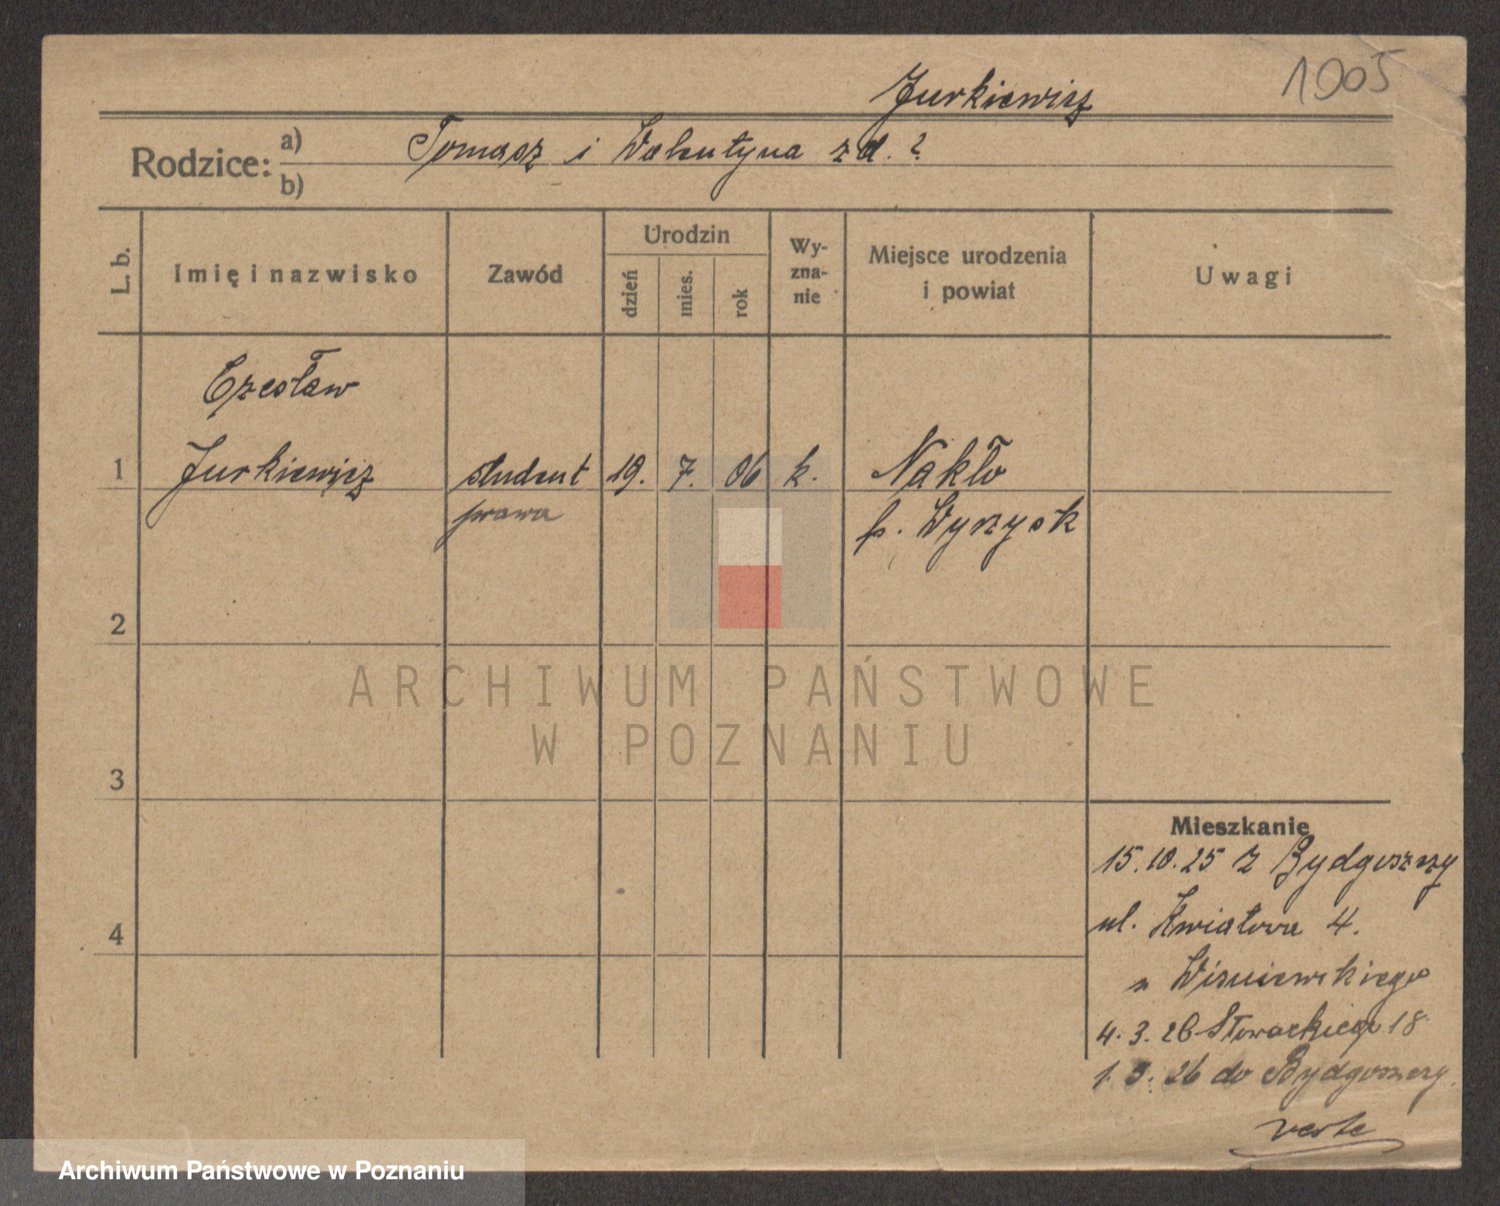 1905
Jurkiewicz
Rodzice: a) Tomasz i Walentyna z d. ?
b)
L. b. Imię i nazwisko Zawód Urodzin dzień mies. rok Wyzna-nie Miejsce urodzenia i powiat Uwagi
Czesław
1 Jurkiewicz student 19. 7. 06 k. Nakło
prawa p. Wyrzysk
2
ARCHIWUM PAŃSTWOWE
W POZNANIU
3
Mieszkanie
15.10.25 z Bydgoszczy
4 ul. Kwiatowa 4.
Wiśniewskiego
4. 3. 26 Słowackiego 18
26 do Bydgoszczy.
verte
Archiwum Państwowe w Poznaniu